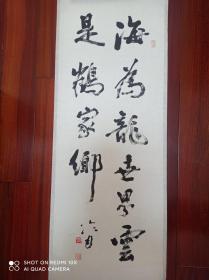 海為龍世界雲
是鶴家鄉
SHOT ON REDMI 10X
AI QUAD CAMERA